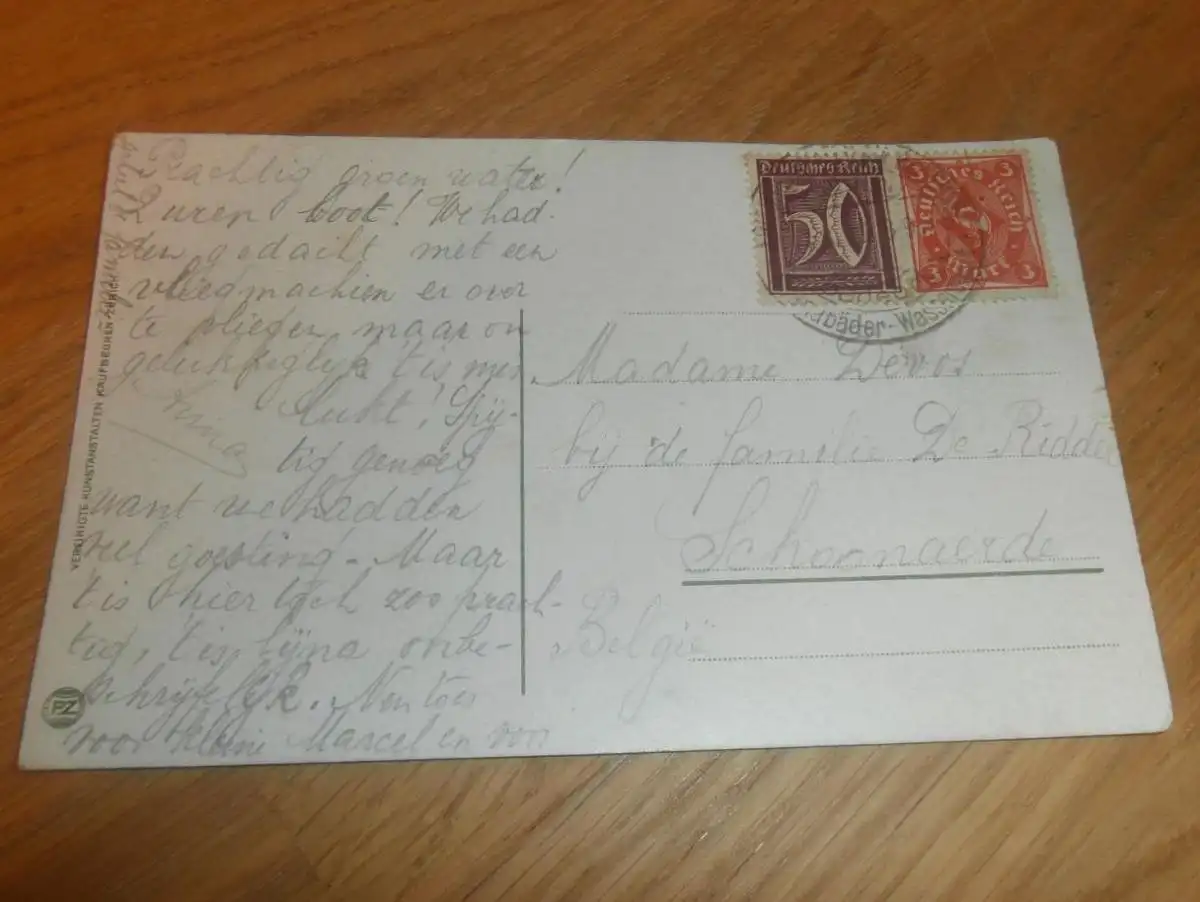 Prachtig groen water!
2 uren boot! We had-
den gedacht met een
vliegmachien er over
te vliegen, maar on
gelukkiglijk 't is mis
lukt! Spij-
tig genoeg
want we hadden
veel goesting - Maar
't is hier toch zoo prach-
tig, 't is bijna onbe-
schrijfelijk. Nen toes
voor kleine Marcel en voor
Anna
VEREINIGTE KUNSTANSTALTEN KAUFBEUREN-ZÜRICH
PZ
Deutsches Reich
50
3 3
Deutsches Reich
3 Mark 3
bäder-Wass
Madame Devos
bij de familie De Ridder
Schoonaerde
België